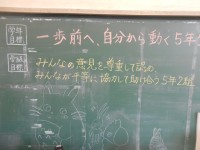 学年目標
一歩前へ、自分から動く5年
学級目標
みんなの意見を尊重して認め
みんなが平等に協力して助け合う5年2組